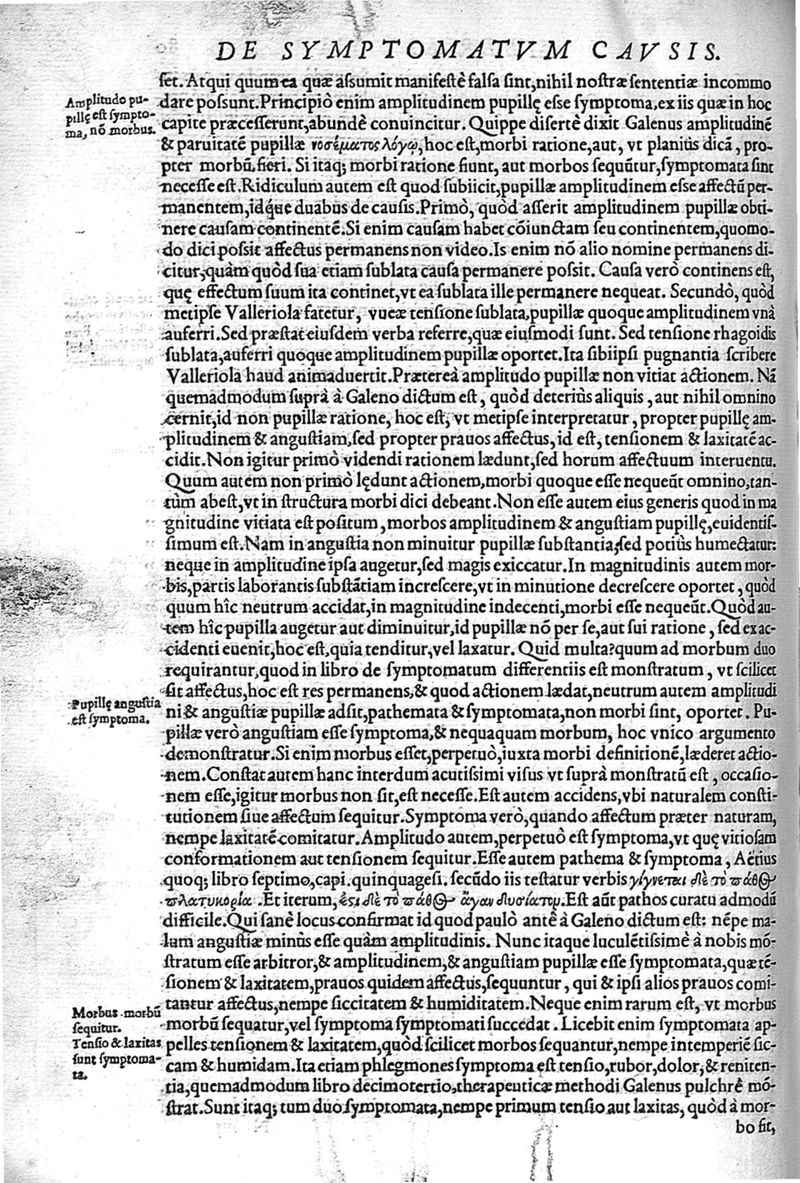 DE SYMPTOMATVM CAVSIS.
set. Atqui quum ea quæ assumit manifestè falsa sint, nihil nostræ sententiæ incommo
Amplitudo pu-
pillę est sympto-
ma, nõ morbus.
dare possunt. Principiò enim amplitudinem pupillę esse symptoma, ex iis quæ in hoc
capite præcesserunt, abundè conuincitur. Quippe disertè dixit Galenus amplitudinẽ
& paruitatẽ pupillæ νοσέματος λόγῳ, hoc est, morbi ratione, aut, vt planiùs dicã, pro-
pter morbũ, fieri. Si itaq; morbi ratione fiunt, aut morbos sequũtur, symptomata sint
necesse est. Ridiculum autem est quod subiicit, pupillæ amplitudinem esse affectũ per-
manentem, idq́ue duabus de causis. Primò, quòd asserit amplitudinem pupillæ obti-
nere causam continentẽ. Si enim causam habet cõiunctam seu continentem, quomo-
do dici possit affectus permanens non video. Is enim nõ alio nomine permanens di-
citur, quàm quòd sua etiam sublata causa permanere possit. Causa verò continens est,
quę effectum suum ita continet, vt ea sublata ille permanere nequeat. Secundò, quòd
metipse Valleriola fatetur, vueæ tensione sublata, pupillæ quoque amplitudinem vnà
auferri. Sed præstat eiusdem verba referre, quæ eiusmodi sunt. Sed tensione rhagoidis
sublata, auferri quoque amplitudinem pupillæ oportet. Ita sibiipsi pugnantia scribere
Valleriola haud animaduertit. Prætereà amplitudo pupillæ non vitiat actionem. Nã
quemadmodum suprà à Galeno dictum est, quòd deteriùs aliquis, aut nihil omnino
cernit, id non pupillæ ratione, hoc est, vt metipse interpretatur, propter pupillę am-
plitudinem & angustiam, sed propter prauos affectus, id est, tensionem & laxitatẽ ac-
cidit. Non igitur primò videndi rationem lædunt, sed horum affectuum interuentu.
Quum autem non primò lędunt actionem, morbi quoque esse nequeũt omnino, tan-
tùm abest, vt in structura morbi dici debeant. Non esse autem eius generis quod in ma
gnitudine vitiata est positum, morbos amplitudinem & angustiam pupillę, euidentis-
simum est. Nam in angustia non minuitur pupillæ substantia, sed potiùs humectatur:
neque in amplitudine ipsa augetur, sed magis exiccatur. In magnitudinis autem mor-
bis, partis laborantis substãtiam increscere, vt in minutione decrescere oportet, quòd
quum hîc neutrum accidat, in magnitudine indecenti, morbi esse nequeũt. Quòd au-
tem hîc pupilla augetur aut diminuitur, id pupillæ nõ per se, aut sui ratione, sed ex ac-
cidenti euenit, hoc est, quia tenditur, vel laxatur. Quid multa? quum ad morbum duo
requirantur, quod in libro de symptomatum differentiis est monstratum, vt scilicet
sit affectus, hoc est res permanens, & quod actionem lædat, neutrum autem amplitudi
Pupillę angustia
est symptoma.
ni & angustiæ pupillæ adsit, pathemata & symptomata, non morbi sint, oportet. Pu-
pillæ verò angustiam esse symptoma, & nequaquam morbum, hoc vnico argumento
demonstratur. Si enim morbus esset, perpetuò, iuxta morbi definitionẽ, læderet actio-
nem. Constat autem hanc interdum acutissimi visus vt suprà monstratũ est, occasio-
nem esse, igitur morbus non sit, est necesse. Est autem accidens, vbi naturalem consti-
tutionem siue affectum sequitur. Symptoma verò, quando affectum præter naturam,
nempe laxitatẽ comitatur. Amplitudo autem, perpetuò est symptoma, vt quę vitiosam
conformationem aut tensionem sequitur. Esse autem pathema & symptoma, Aëtius
quoq; libro septimo, capi. quinquagesi. secũdo iis testatur verbis γίγνεται δὲ τὸ πάθος
πλατυκορία. Et iterum, ἐςὶ δὲ τὸ πάθος ἄγαν δυσίατον. Est aũt pathos curatu admodũ
difficile. Qui sanè locus confirmat id quod paulò antè à Galeno dictum est: nẽpe ma-
lum angustiæ minùs esse quàm amplitudinis. Nunc itaque luculẽtissimè à nobis mõ-
stratum esse arbitror, & amplitudinem, & angustiam pupillæ esse symptomata, quæ tẽ-
sionem & laxitatem, prauos quidem affectus, sequuntur, qui & ipsi alios prauos comi-
Morbus morbũ
sequitur.
Tensio & laxitas
sunt symptoma-
ta.
tantur affectus, nempe siccitatem & humiditatem. Neque enim rarum est, vt morbus
morbũ sequatur, vel symptoma symptomati succedat. Licebit enim symptomata ap-
pelles tensionem & laxitatem, quòd scilicet morbos sequantur, nempe intemperiẽ sic-
cam & humidam. Ita etiam phlegmones symptoma est tensio, rubor, dolor, & reniten-
tia, quemadmodum libro decimotertio, therapeuticæ methodi Galenus pulchrè mõ-
strat. Sunt itaq; tum duo symptomata, nempe primum tensio aut laxitas, quòd à mor-
bo sit,